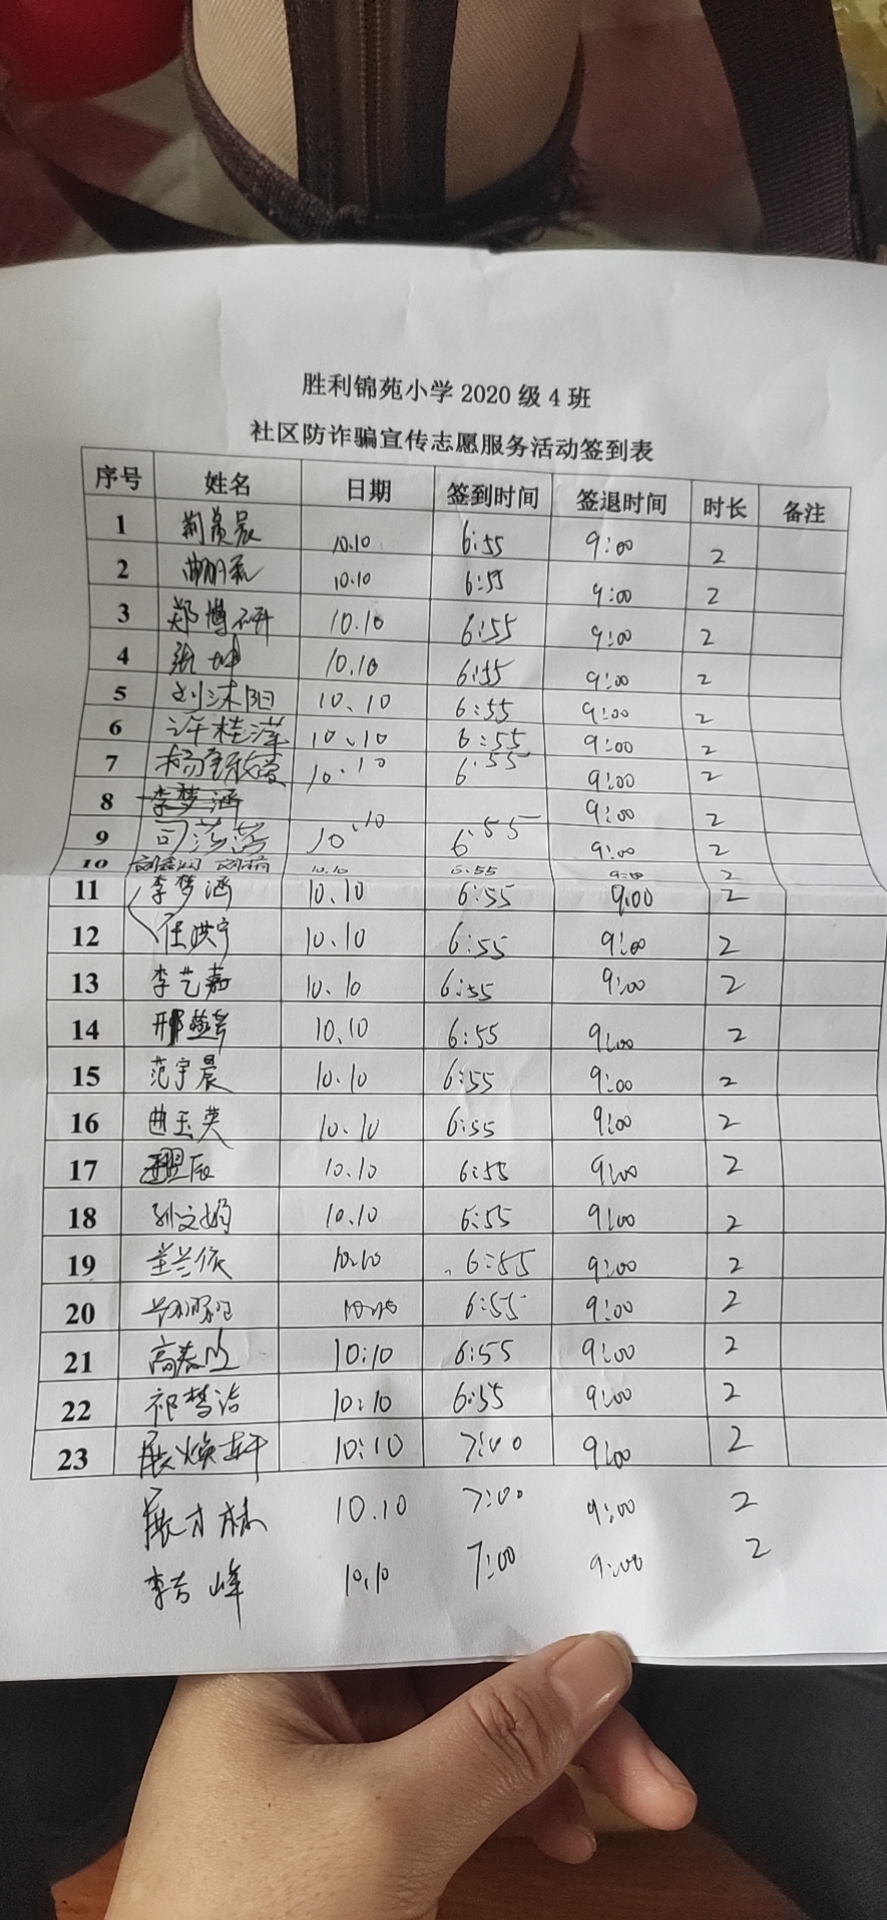 胜利锦苑小学2020级4班
社区防诈骗宣传志愿服务活动签到表
序号 姓名 日期 签到时间 签退时间 时长 备注
1 10.10 6:55 9:00 2
2 10.10 6:55 9:00 2
3 郑博研 10.10 6:55 9:00 2
4 张坤 10.10 6:55 9:00 2
5 刘沫阳 10.10 6:55 9:00 2
6 许桂萍 10.10 6:55 9:00 2
7 10.10 6:55 9:00 2
8 李梦涵 9:00 2
9 10.10 6:55 9:00 2
10 10.10 6:55 9:00 2
11 李梦涵 10.10 6:55 9:00 2
12 任洪宇 10.10 6:55 9:00 2
13 李艺嘉 10.10 6:55 9:00 2
14 10.10 6:55 9:00 2
15 范宇晨 10.10 6:55 9:00 2
16 曲玉英 10.10 6:55 9:00 2
17 10.10 6:55 9:00 2
18 孙文娟 10.10 6:55 9:00 2
19 10.10 6:55 9:00 2
20 6:55 9:00 2
21 10:10 6:55 9:00 2
22 祁梦洁 10:10 6:55 9:00 2
23 展焕轩 10:10 7:00 9:00 2
展才林 10.10 7:00 9:00 2
李吉峰 10.10 7:00 9:00 2